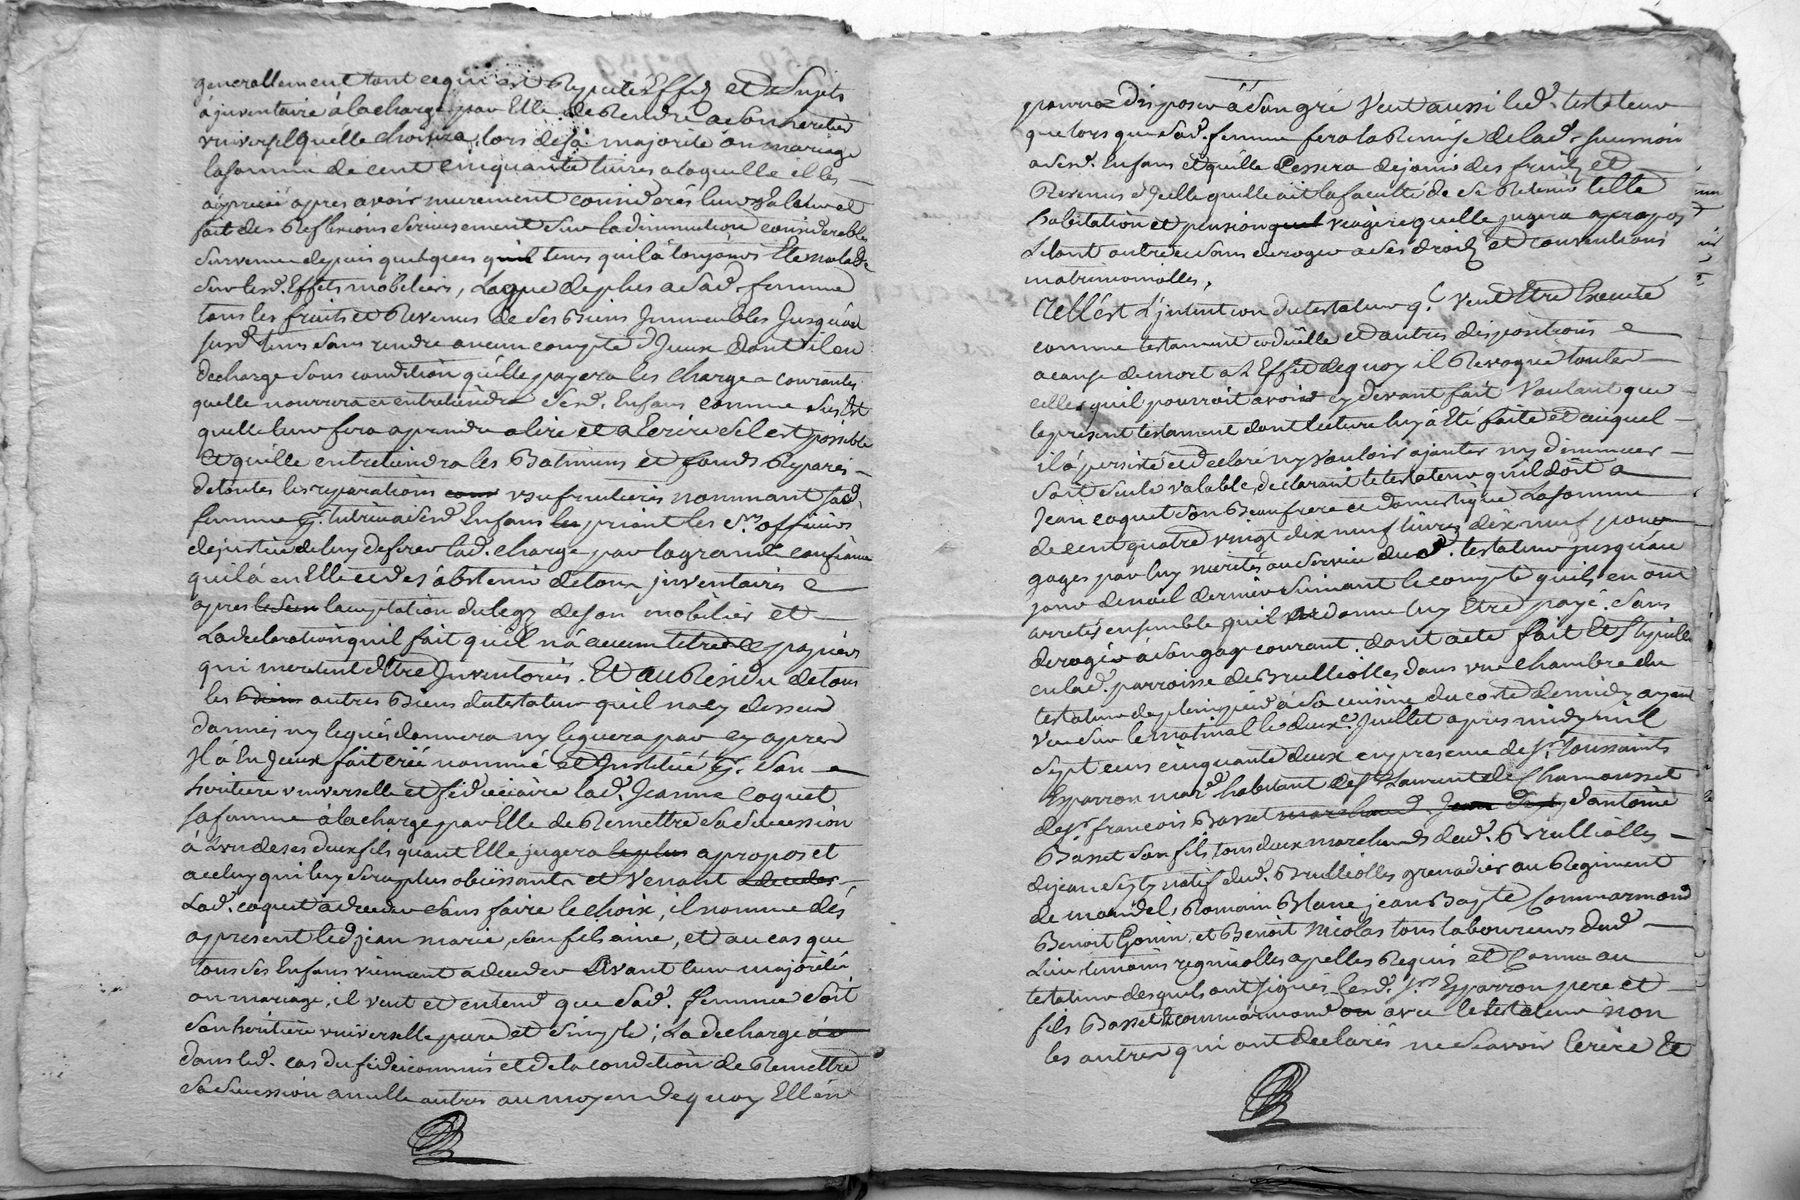 generallement tout ce qui est Reputé Effez et Sujets
a juventaire a la charge par Elle de Rendre a son heritier
universel quelle choisira, lors de sa majorité ou mariage
la somme de cent cinquante livres a laquelle il les
aprecié apres avoir murement considerés leur valeur et
fait des Reflexions serieusement sur la diminution considerable
survenue depuis quelques tems quil a toujours Eté malade
sur lesd. Effets mobiliers, Legue de plus a sad. femme
tous les fruits et Revenus de ses Biens Jmmeubles Jusqu'au
susd. tems sans rendre aucun compte d'Jceux dont il en
decharge sous condition quelle payera les charges courantes
quelle nourrira et entretiendra sesd. Enfans comme sus Est
quelle leur fera aprendre a lire et a Ecrire sil est possible
Et quelle entretiendra les Batimens et fonds Reparés
de toutes les reparations usufruitieres nommant sad.
femme tutrice a sesd. Enfans priant les srs. officiers
de justice de luy deferer lad. charge par la grande confiance
quil a en Elle et de s'abstenir de tous jnventaires
apres lacceptation du legz de son mobilier et
La declaration quil fait quil n'a aucun titre et papiers
qui meritent d'être Jnventoriés. Et au Residu de tous
les autres Biens du testateur quil na cy dessus
donnés ny legués donnera ny leguera par cy apres
Jl a En Jceux fait créé nommé et Jnstitué son
heritiere universelle et fideiciaire lad. Jeanne Coquet
sa femme a la charge par Elle de Remettre sa succession
à l'un de ses deux fils quant Elle jugera a propos et
a celuy qui luy sera plus obëissant et Venant
Lad. coquet a deceder sans faire le choix, il nomme dés
a present led jean marie, son fils aine, et au cas que
tous ses Enfans viennent a deceder Avant leur majorité
ou mariage, il veut et entend que sad. femme soit
son heritiere universelle pure et simple; La decharge
dans led. cas du fideicommis et de la condition de Remettre
sa succession a nulle autres au moyen de quoy Elle en
pourra disposer à son gré Veut aussi led. testateur
que lors que sad. femme fera la Remise de lad. succession
a sesd. Enfans et quelle Cessera de jouir des fruits et
Revenus d'Jcelle quelle ait la faculté de se Retenir telle
habitation et pension viagere quelle jugera a propos
Le tout outre et sans deroger a ses droits et conventions
matrimonialles,
Telle est L'jntention du testateur qu'il veut Etre Executé
comme testament codicille et autres dispositions
a cause de mort a L'Effet dequoy il Revoque toutes
celles quil pourroit avoir cy devant fait Voulant que
le present testament dont lecture luy a Eté faite et auquel
il a persisté et declaré n'y vouloir ajouter ny diminuer
soit seule valable, declarant le testateur quil doit a
Jean coquet son Beaufrere et domestique La somme
de cent quatre vingt dix neuf livres dix neuf pour
gages par luy merités au service dud. testateur jusqu'au
jour de noël dernier suivant le compte quils en ont
arretés ensemble quil donne luy Etre payé. sans
deroger à son gage courant. dont acte fait Et Stipulé
en lad. parroisse de Brulliolles dans une chambre du
testateur de plein pied à sa cuisine du coté de midy ayant
vue sur le matinal le deuxe. Juillet apres midy mil
sept cens cinquante deux en presence de sr. Toussaints
Esparron mard. habitant de St. Laurent de Chamousset
de sr. françois Basset d'antoine
Basset son fils, tous deux marchands dud. Brulliolles
de jean natif dud. Brulliolles grenadier au Regiment
de mandel, Romain Blanc jean Bapte. Commarmond
Benoit Gonin, et Benoit Nicolas tous laboureurs dud.
Lieu temoins regnicolles apelles Requis et Connu au
testateur desquels ont signés Lesd. srs. Esparron pere et
fils Basset Commarmond avec le testateur non
les autres qui ont declarés ne Scavoir Ecrire Et